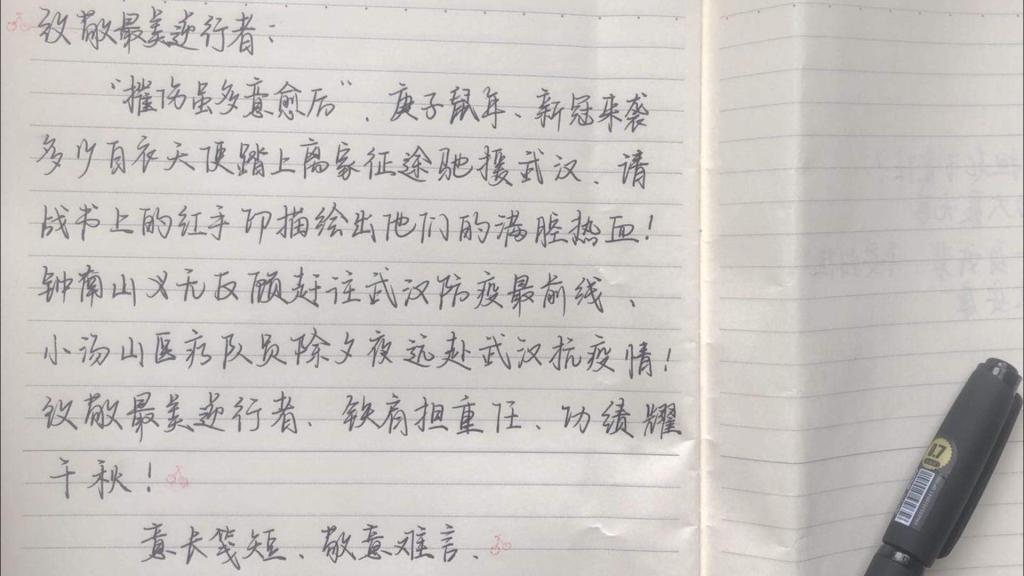 致敬最美逆行者：
“摧伤虽多意愈厉”，庚子鼠年、新冠来袭
多少白衣天使踏上离家征途驰援武汉、请
战书上的红手印描绘出他们的满腔热血！
钟南山义无反顾赶往武汉防疫最前线、
小汤山医疗队员除夕夜远赴武汉抗疫情！
致敬最美逆行者、铁肩担重任、功绩耀
千秋！
意长笺短、敬意难言、
17